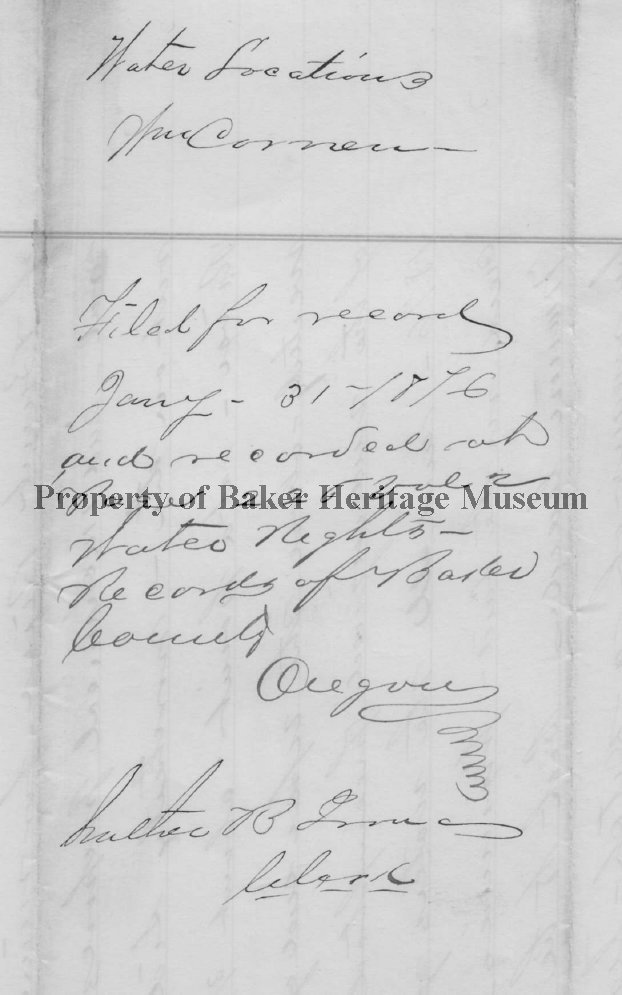 Water Locations
Wm Cornell
Filed for record
Jany - 31 - 1876
and recorded at
Property of Baker Heritage Museum
Water Rights -
Records of Baker
County
Oregon
Luther B Ison
Clerk